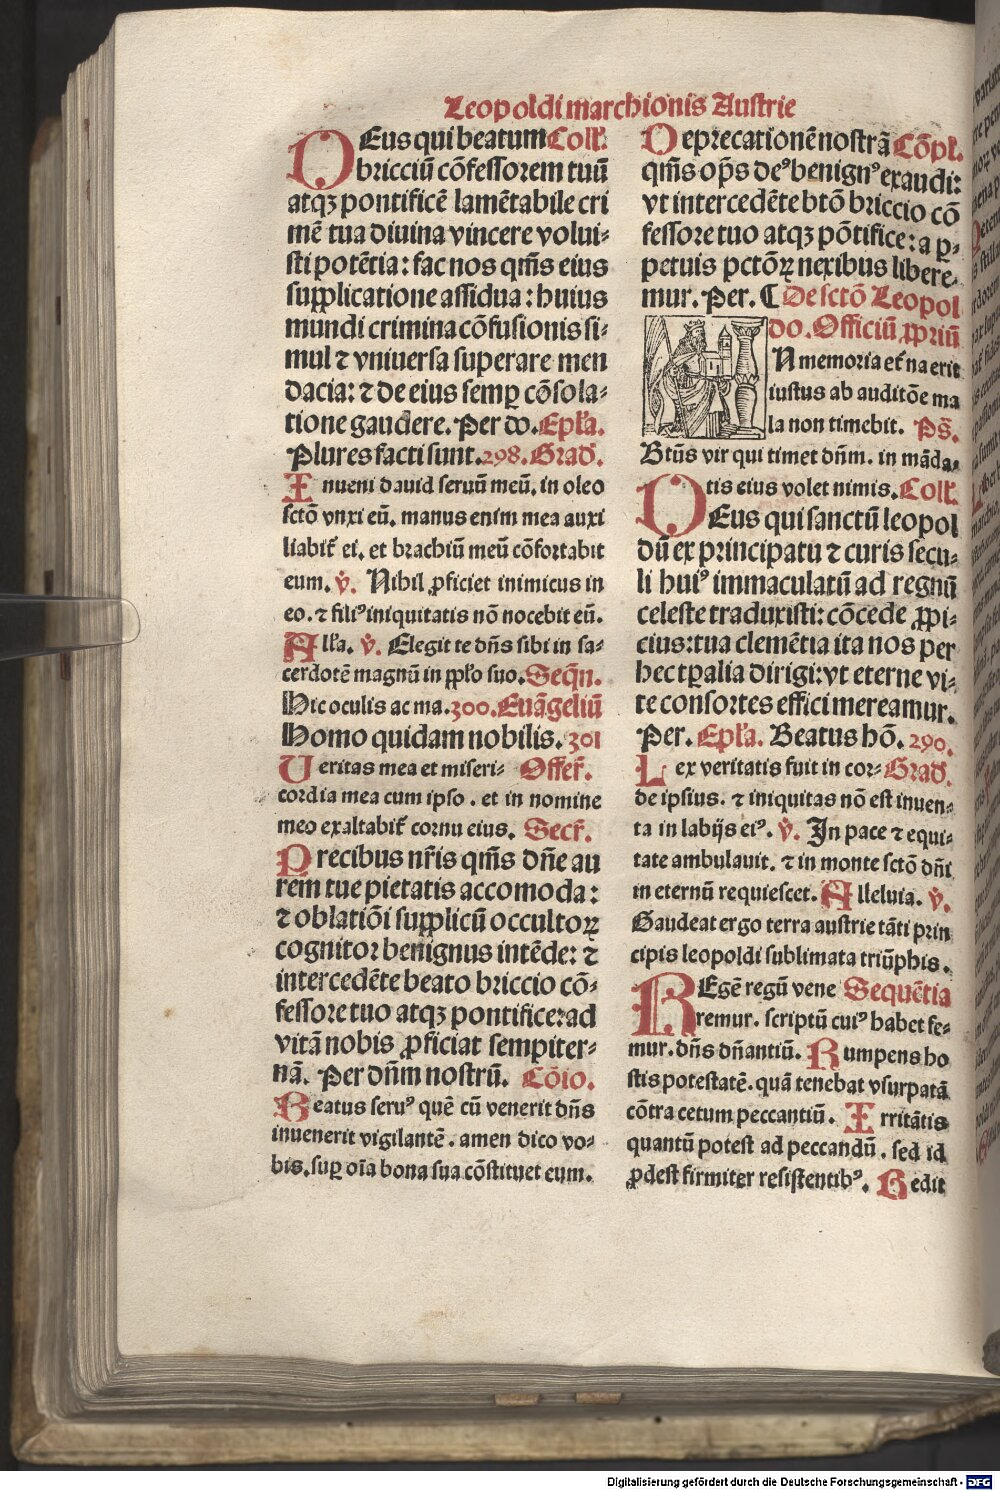 Leopoldi marchionis Austrie
DEus qui beatum Coll'.
bricciū cōfessorem tuū
atqȝ pontificē lamētabile cri
mē tua diuina vincere volui⸗
sti potētia: fac nos qm̄s eius
supplicatione assidua: huius
mundi crimina cōfusionis si⸗
mul ⁊ vniuersa superare men
dacia: ⁊ de eius semꝑ cōsola⸗
tione gaudere. Per do. Epl'a.
Plures facti sunt. 298. Grad'.
Inueni dauid seruū meū. in oleo
sctō vnxi eū. manus enim mea auxi
liabit' ei. et brachiū meū cōfortabit
eum. v̄. Nihil ꝓficiet inimicus in
eo. ⁊ filiꝰ iniquitatis nō nocebit eū.
All'a. v̄. Elegit te dn̄s sibi in sa⸗
cerdotē magnū in ppl'o suo. Seqn̄.
Hic oculis ac ma. 300. Euāgeliū
Homo quidam nobilis. 301
Ueritas mea et miseri⸗ Offer'.
cordia mea cum ipso. et in nomine
meo exaltabit' cornu eius. Secr'.
Precibus nr̄is qm̄s dn̄e au
rem tue pietatis accomoda:
⁊ oblatiōi supplicū occultoꝝ
cognitor benignus intēde: ⁊
intercedēte beato briccio cō⸗
fessore tuo atqȝ pontifice: ad
vitā nobis ꝓficiat sempiter⸗
nā. Per dn̄m nostrū. Cōio.
Beatus seruꝰ quē cū venerit dn̄s
inuenerit vigilantē. amen dico vo⸗
bis. suꝑ oīa bona sua cōstituet eum.
Deprecationē nostrā Cōpl'.
qm̄s op̄s deꝰ benignꝰ exaudi:
vt intercedēte btō briccio cō
fessore tuo atqȝ pōtifice: a ꝑ⸗
petuis pctōꝝ nexibus libere⸗
mur. Per. ¶ De sctō Leopol
do. Officiū ꝓpriū
IN memoria et'na erit
iustus ab auditōe ma
la non timebit. Ps̄.
Btūs vir qui timet dn̄m. in māda⸗
tis eius volet nimis. Coll'.
DEus qui sanctū leopol
dū ex principatu ⁊ curis secu⸗
li huiꝰ immaculatū ad regnū
celeste traduxisti: cōcede ꝓpi⸗
cius: tua clemētia ita nos per
hec tꝑalia dirigi: vt eterne vi⸗
te consortes effici mereamur.
Per. Epl'a. Beatus hō. 290.
Lex veritatis fuit in cor⸗ Grad'.
de ipsius. ⁊ iniquitas nō est inuen⸗
ta in labijs eiꝰ. v̄. In pace ⁊ equi⸗
tate ambulauit. ⁊ in monte sctō dn̄i
in eternū requiescet. Alleluia. v̄.
Gaudeat ergo terra austrie tāti prin
cipis leopoldi sublimata triūphis.
REgē regū vene Sequētia
remur. scriptū cuiꝰ habet fe⸗
mur. dn̄s dn̄antiū. Rumpens ho
stis potestatē. quā tenebat vsurpatā
cōtra cetum peccantiū. Irritātis
quantū potest ad peccandū. sed id
ꝓdest firmiter resistentibꝰ. Gedit
Digitalisierung gefördert durch die Deutsche Forschungsgemeinschaft - DFG